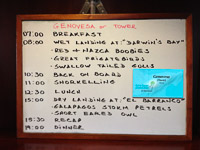 GENOVESA or TOWER
07:00 BREAKFAST
08:00 WET LANDING AT: "DARWIN'S BAY"
- RED + NAZCA BOOBIES
- GREAT FRIGATEBIRDS
- SWALLOW TAILED GULLS
10:30 BACK ON BOARD
11:00 SNORKELLING
12:30 LUNCH
15:00 DRY LANDING AT: "EL BARRANCO"
- GALAPAGOS STORM PETRELS
- SHORT EARED OWL
18:30 RECAP
19:00 DINNER